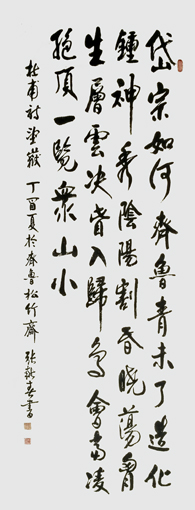 岱宗如何齊魯青未了造化
鍾神秀陰陽割昏曉蕩胷
生層雲決眥入歸鳥會當凌
絕頂一覽衆山小
杜甫詩望嶽 丁酉夏於齊魯松竹齋 張書